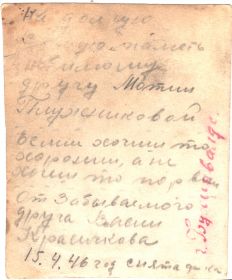 На долгую
память
любимому
другу Мотии
Плужниковой
Если хочиш то
хорони, а не
хочиш то порви
От Забываемого
друга Евсии
Красичкова
15.4.46 год снята